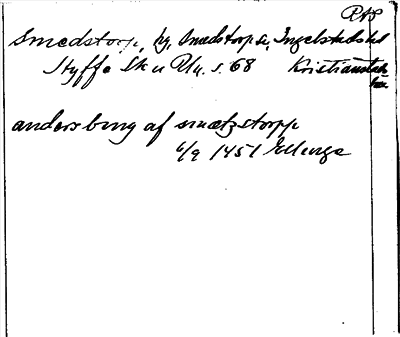 PAS
Smedstorp, by, Smedstorp sn, Ingelstads hd
Styffe Sk u Un. s. 68 Kristianstads
län
anders bing af smetzstorpp
6/9 1451 Ellinge